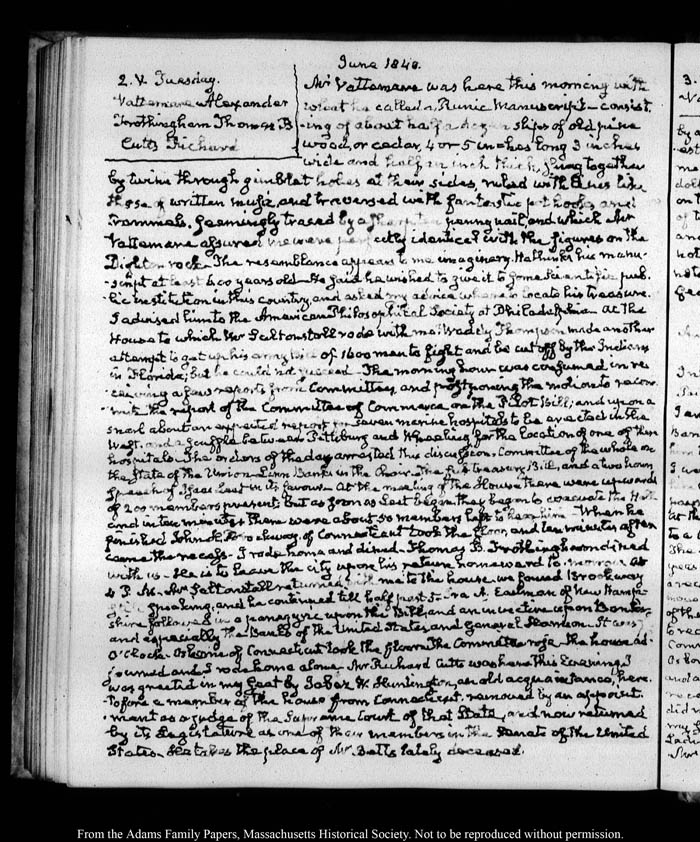 June 1840.
2. V. Tuesday.
Vattemare Alexander
Frothingham Thomas B
Cutts Richard
Mr Vattemare was here this morning with
what he called a Runic Manuscript— consist-
-ing of about half a dozen ships of old pine
wood, or cedar, 4 or 5 inches long 3 inches
wide and half an inch thick, strung together
by twine through gimblet holes at their sides, ruled with lines like
those of written music, and traversed with fantastic pot hooks and
trammels, seemingly traced by a sharp ten penny nail, and which Mr
Vattemare assured me were perfectly identical with the figures on the
Dighton rock— The resemblance appears to me imaginary. He thinks his manu-
-script at least 600 years old— He said he wished to give it to some scientific pub-
-lic institution in this country, and asked my advice where to locate his treasure.
I advised him to the American Philosophical Society at Philadelphia— At the
House to which Mr Saltonstall rode with me. Waddy Thompson made another
attempt to get up his army bill of 1600 men to fight and be cut off by the Indians
in Florida; but he could not succeed— The morning hour was consumed in re-
-ceiving a few reports from Committees, and postponing the motion to recom-
-mit the report of the Committee of Commerce on the Pilot Bill; and upon a
snarl about an expected report for seven marine hospitals to be erected in the
West, and a scuffle between Pittsburg and Wheeling for the location of one of these
hospitals. The orders of the day arrested this discussion. Committee of the whole on
the State of the Union— Linn Banks in the Chair. The sub treasury Bill, and a two hours
Speech of Isaac Leet in its favour— At the meeting of the House there were upwards
of 200 members present, but as soon as Leet began they began to evacuate the Hall
and in ten minutes there were about 50 members left to hear him— When he
finished John H. Brockway of Connecticut took the floor, and ten minutes after
came the recess— I rode home and dined— Thomas B. Frothingham dined
with us— He is to leave the city upon his return homeward to-morrow at
4 P.M. Mr Saltonstall returned with me to the house. we found Brockway
still speaking, and he continued till half past 5— Ira A. Eastman of New Hamp-
shire followed in a panegyric upon the Bill, and an invective upon Banks
and especially the Bank of the United States, and General Harrison. It was
O'Clock Osborne of Connecticut took the floor. The Committee rose the house ad-
-journed and I rode home alone. Mr Richard Cutts was here this Evening. I
was greeted in my seat by Jabez W. Huntington, an old acquaintance, here-
-tofore a member of the House from Connecticut, removed by an appoint-
-ment as a judge of the Supreme Court of that State, and now returned
by its Legislature as one of their members in the Senate of the United
States— He takes the place of Mr Betts lately deceased.
From the Adams Family Papers, Massachusetts Historical Society. Not to be reproduced without permission.